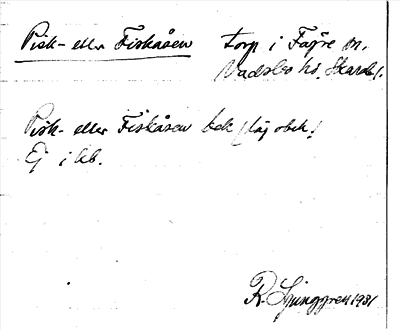 Pisk- eller Fiskåsen torp i Fägre sn,
Vadsbo hd, Skarab.
Pisk- eller Fiskåsen bek (låg obek.)
Ej i kb.
R. Ljunggren 1931